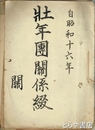 自昭和十六年
壮年團關係綴
關